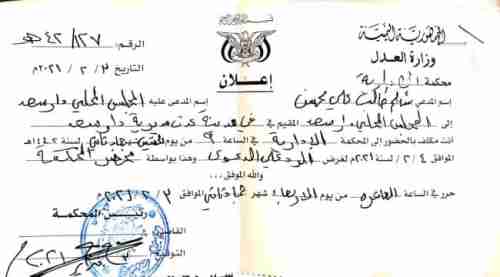 الجمهورية اليمنية
وزارة العدل
محكمة الإدارية
الرقم: ١٢٧/ ٤٢ هـ
التاريخ ٣ / ٢ / ٢٠٢١م
إعلان
إسم المدعي سالم محسن إسم المدعى عليه المجلس المحلي دار سعد
إلى المجلس المحلي دار سعد المقيم في مدينة عدن مديرية دار سعد
أنت مكلف بالحضور إلى المحكمة الإدارية في الساعة ٩ من يوم لسنة ١٤٤٢هـ
الموافق ٤ / ٢ / ٢٠٢١م لغرض الرد على الدعوى وهذا بواسطة محضر المحكمة
والله الموفق،،،
حرر في الساعة العاشرة من يوم الاربعاء شهر جماد ثاني الموافق ٣ / ٢ / ٢٠٢١م
رئيس المحكمة
القاضي
التوقيع